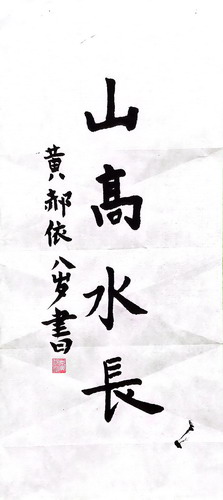 山高水長
黄郝依八岁書